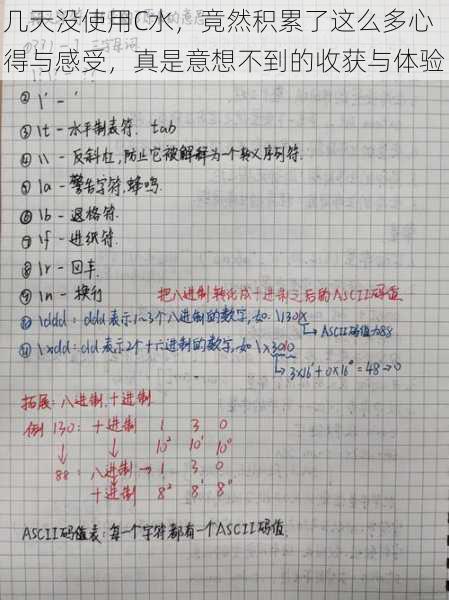 几天没使用C水，竟然积累了这么多心
得与感受，真是意想不到的收获与体验
② \' - '
③ \t - 水平制表符. tab
④ \\ - 反斜杠,防止它被解释为一个转义序列符.
⑤ \a - 警告字符,蜂鸣.
⑥ \b - 退格符.
⑦ \f - 进纸符.
⑧ \r - 回车.
⑨ \n - 换行
把八进制转化成十进制之后的ASCII码值
⑩ \ddd : ddd表示1~3个八进制的数字,如: \130X
↳ ASCII码值为88
⑪ \xdd: dd表示2个十六进制的数字,如 \x300
↳ 3x16¹+0x16⁰=48→0
拓展: 八进制,十进制
例 130: 十进制 1 3 0
↓ ↓ 10² 10¹ 10⁰
88: 八进制→ 1 3 0
十进制 8² 8¹ 8⁰
ASCII码值表: 每一个字符都有一个ASCII码值.